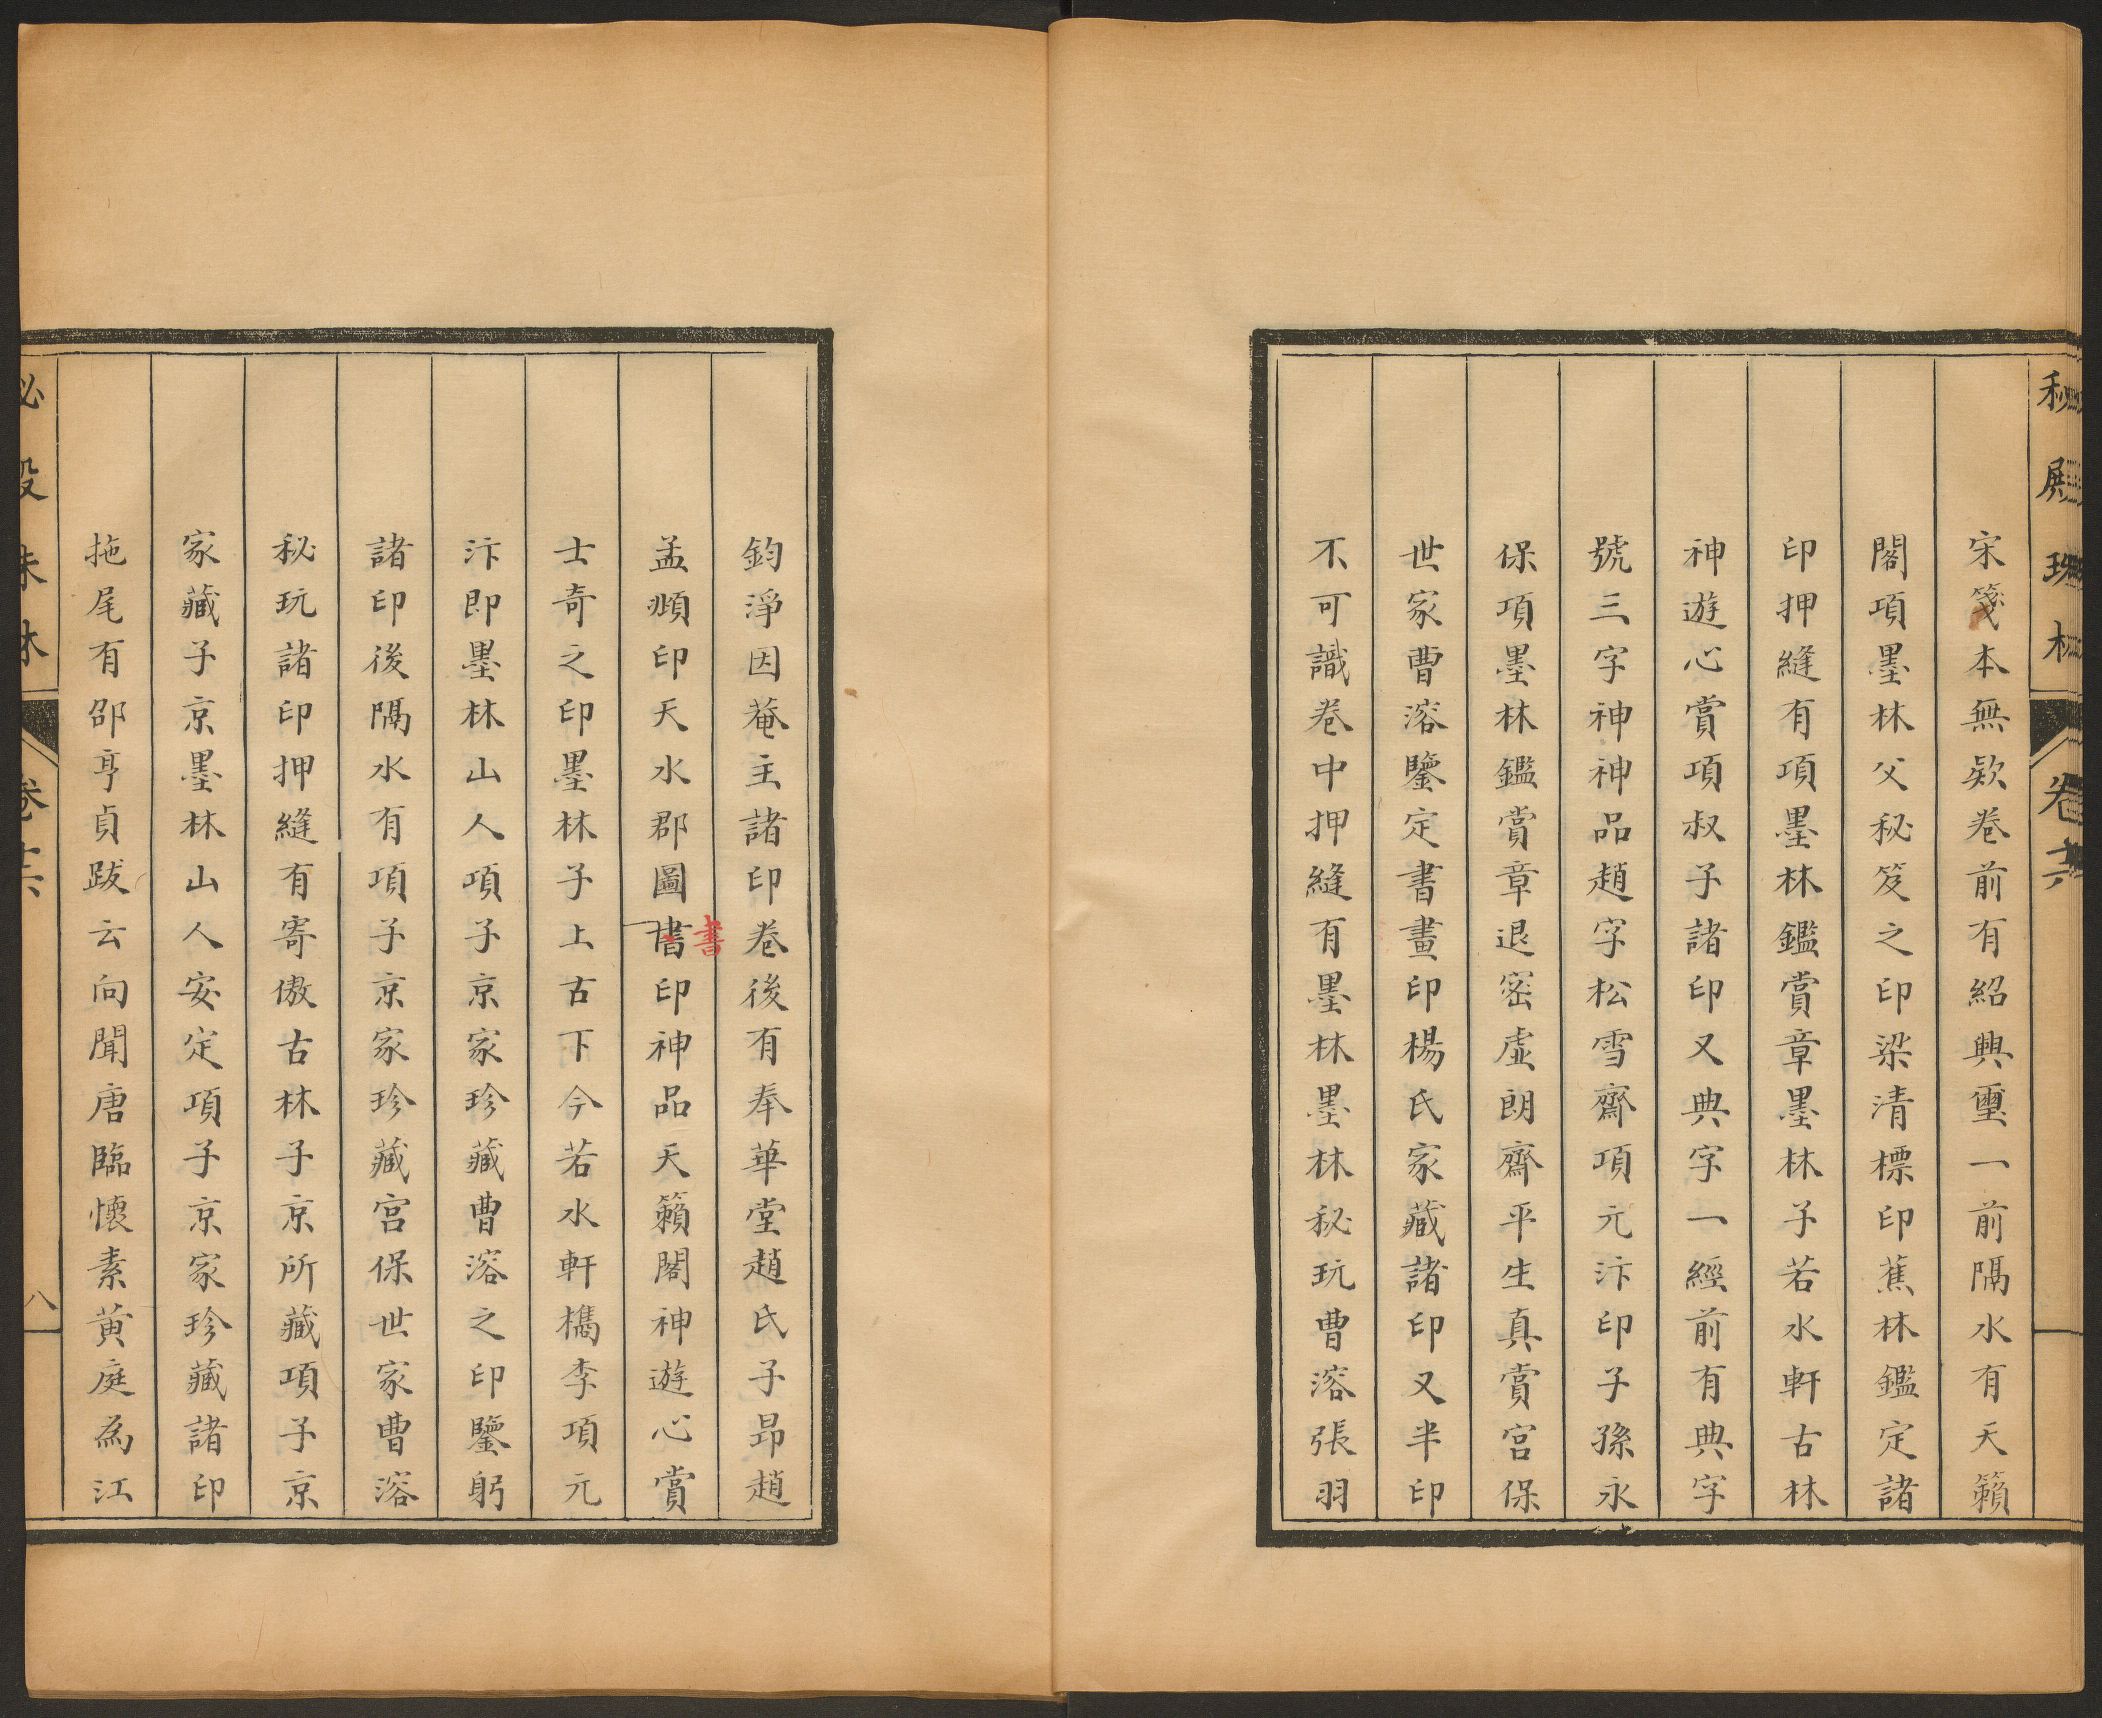 秘殿珠林 卷十六
宋箋本無欵卷前有紹興璽一前隔水有天籟
閣項墨林父秘笈之印梁清標印蕉林鑑定諸
印押縫有項墨林鑑賞章墨林子若水軒古林
神遊心賞項叔子諸印又典字一經前有典字
號三字神神品趙字松雪齋項元汴印子孫永
保項墨林鑑賞章退密虛朗齋平生真賞宮保
世家曹溶鑒定書畫印楊氏家藏諸印又半印
不可識卷中押縫有墨林墨林秘玩曹溶張羽
鈞淨因菴主諸印卷後有奉華堂趙氏子昂趙
孟頫印天水郡圖書印神品天籟閣神遊心賞
書
士奇之印墨林子上古下今若水軒檇李項元
汴即墨林山人項子京家珍藏曹溶之印鑒躬
諸印後隔水有項子京家珍藏宮保世家曹溶
秘玩諸印押縫有寄傲古林子京所藏項子京
家藏子京墨林山人安定項子京家珍藏諸印
拖尾有邵亨貞跋云向聞唐臨懷素黃庭為江
秘殿珠林 卷十六 八